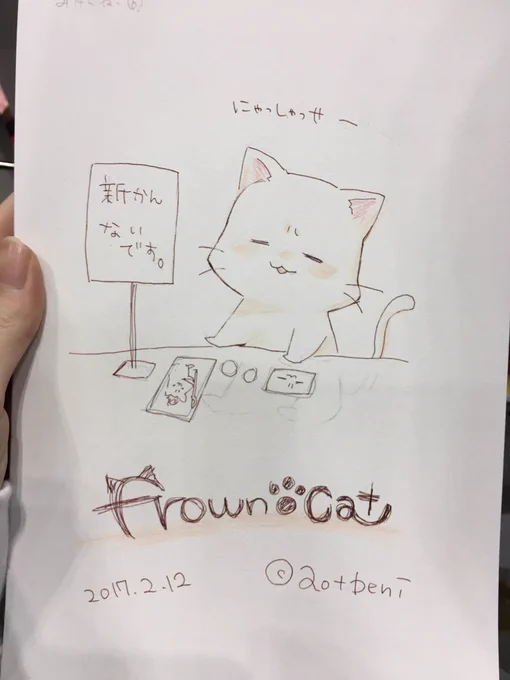 にゃっしゃっせー
新かん
ない
です。
Frown Cat
2017.2.12